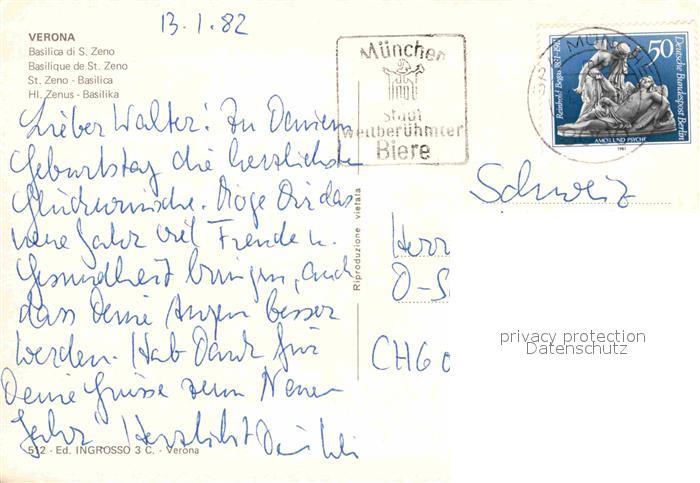 13.1.82
VERONA
Basilica di S. Zeno
Basilique de St. Zeno
St. Zeno - Basilica
Hl. Zenus - Basilika
Lieber Walter! Zu Deinem
Geburtstag die herzlichsten
Glückwünsche. Möge Dir das
neue Jahr viel Freude u.
Gesundheit bringen, auch
dass Deine Augen besser
werden. Hab Dank für
Deine Grüsse zum Neuen
Jahr Herzlichst
512 - Ed. INGROSSO 3 C. - Verona
Riproduzione vietata
München
Stadt
weltberühmter
Biere
MÜN
50
Deutsche Bundespost Berlin
Reinhold Begas 1831-1911
AMOR UND PSYCHE
1981
Schweiz
Herr
CH6
privacy protection
Datenschutz